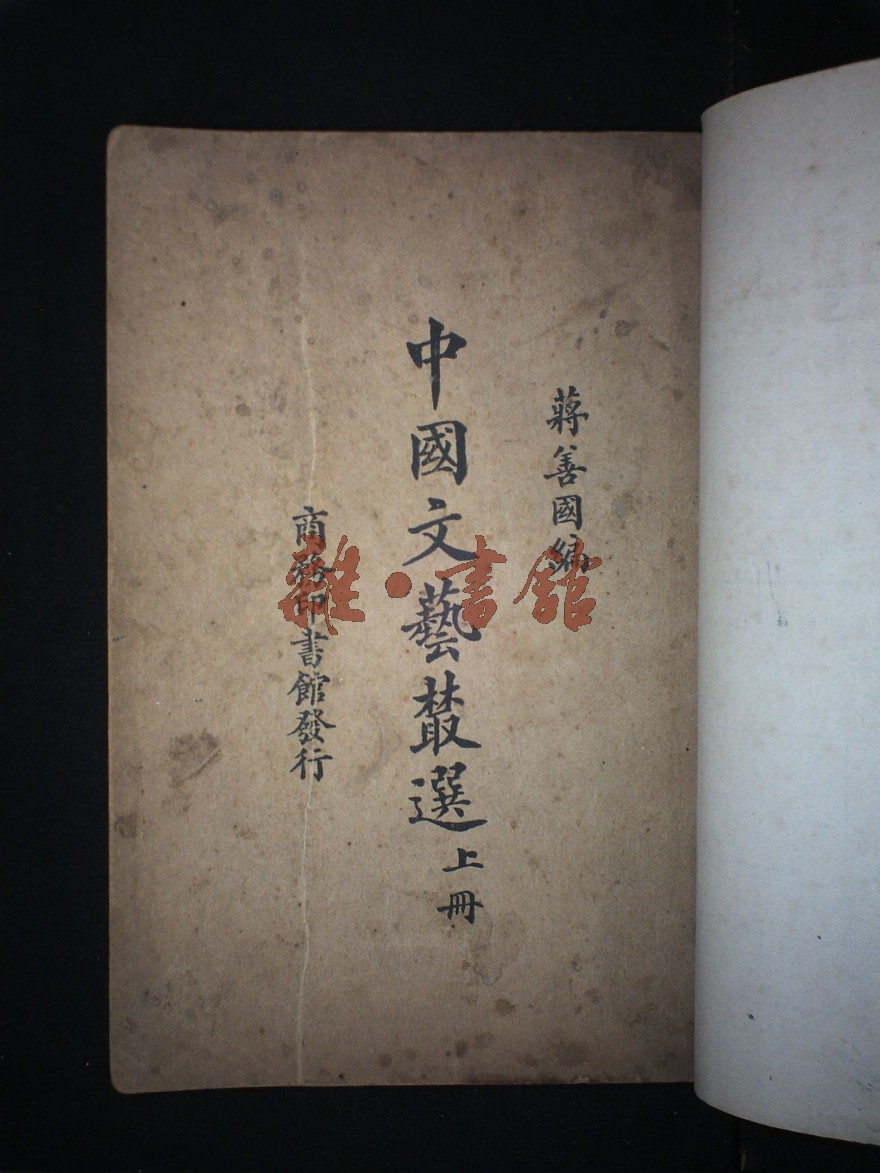 蔣善國編
中國文藝叢選 上冊
商務印書館發行
雜·書館